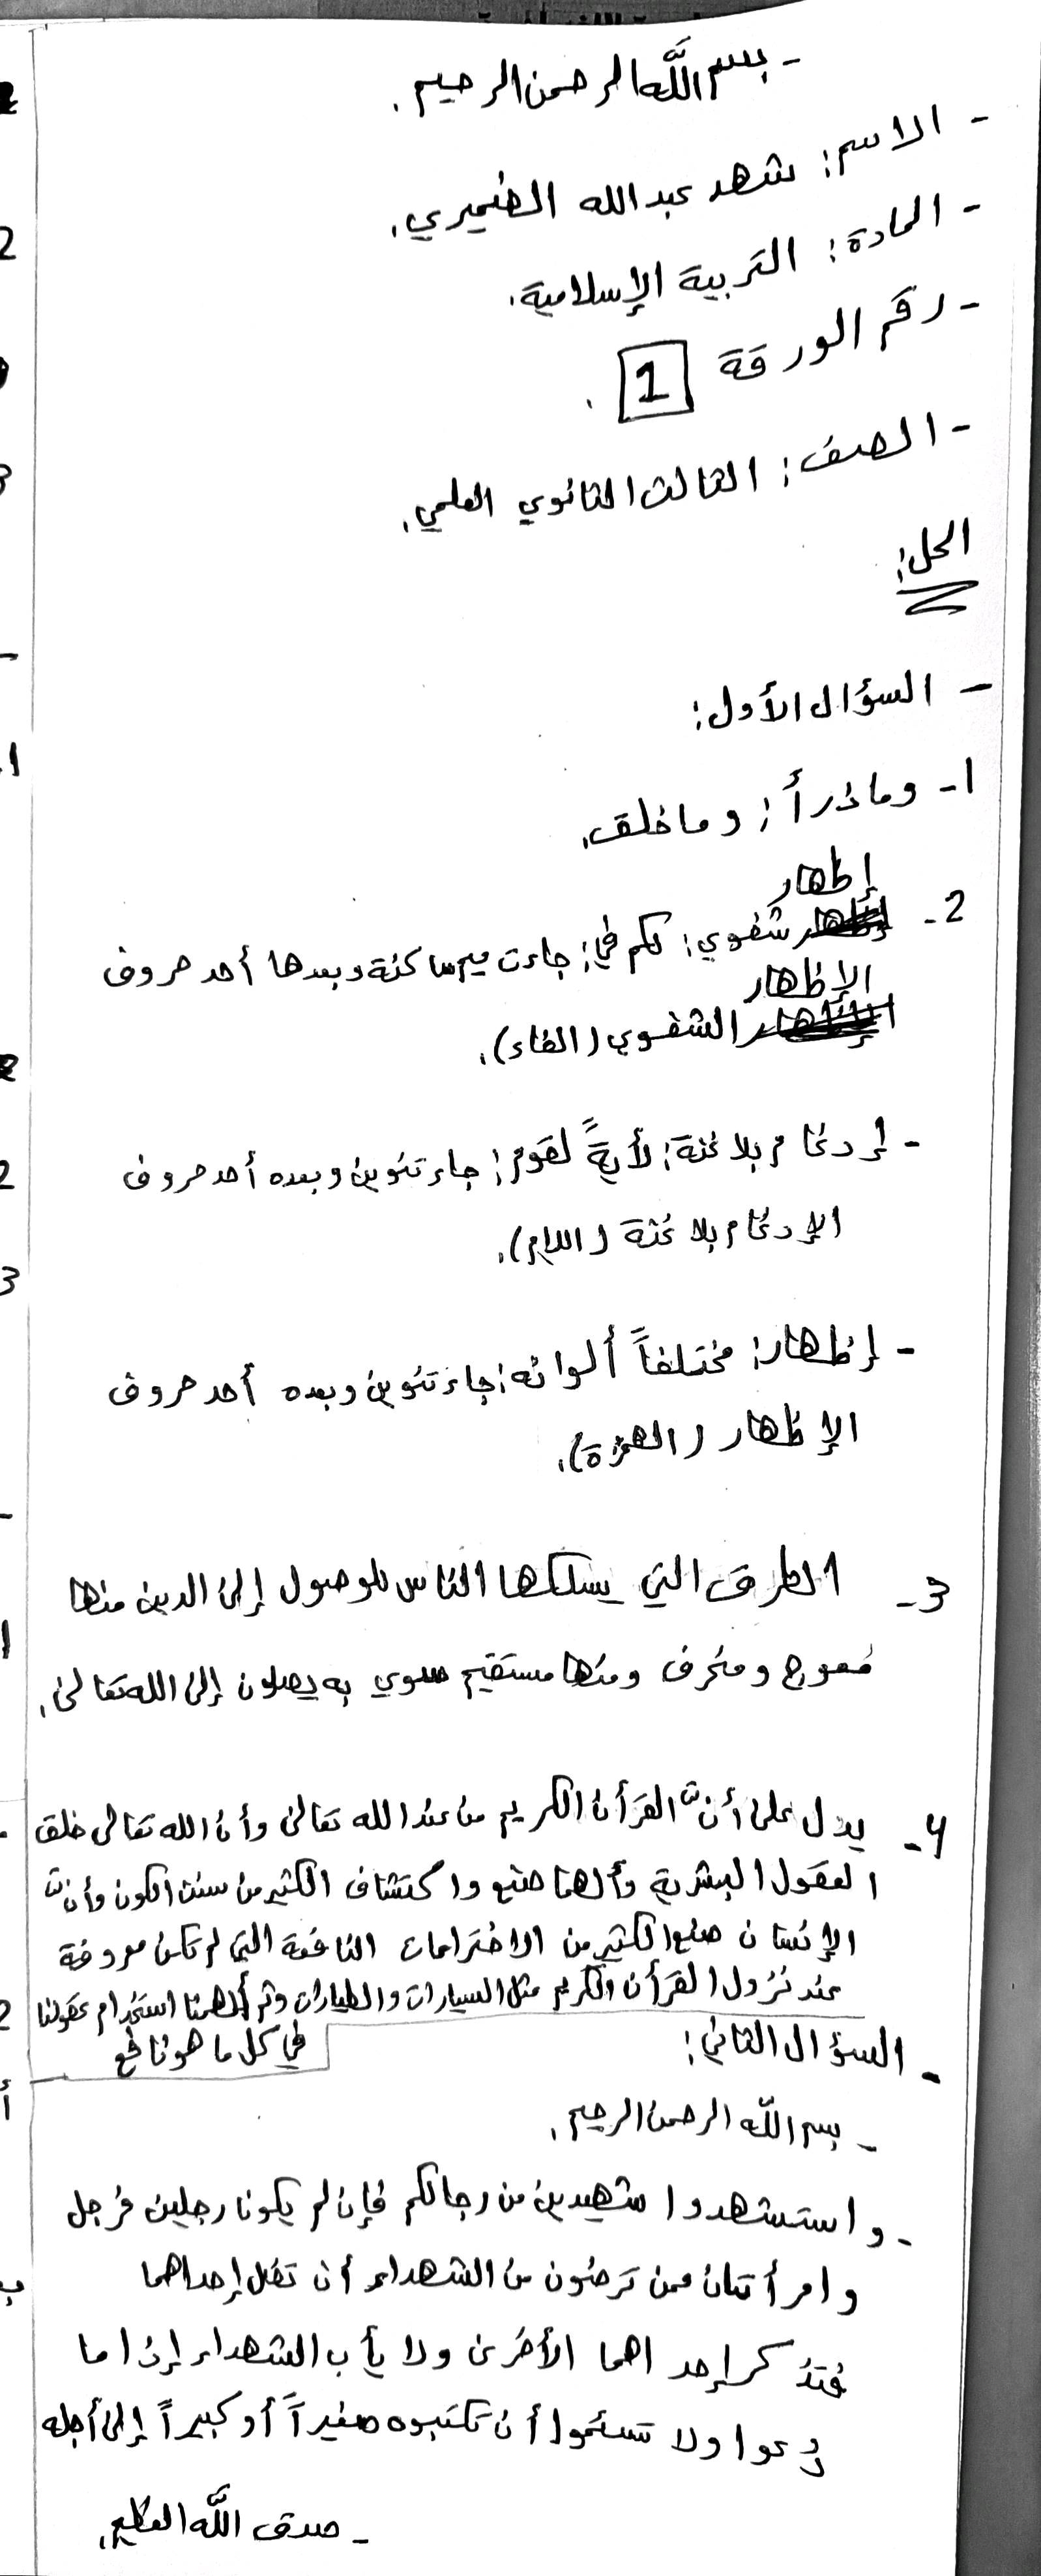 - بسم اللَّه الرحمن الرحيم.
- الاسم: شهد عبدالله الضميري.
- المادة: التربية الإسلامية.
- رقم الورقة 1.
- الصف: الثالث الثانوي العلمي.
الحل:
- السؤال الأول:
1- وما ذرأ: وما خلق.
2- إظهار شفوي: لكم في: جاءت ميم ساكنة وبعدها أحد حروف
الإظهار الشفوي (الفاء).
- إدغام بلا غنة: لأيةً لقوم: جاء تنوين وبعده أحد حروف
الإدغام بلا غنة (اللام).
- إظهار: مختلفاً ألوانه: جاء تنوين وبعده أحد حروف
الإظهار (الهمزة).
3- الطرق التي يسلكها الناس للوصول إلى الدين منها
معوج ومنحرف ومنها مستقيم سوي به يصلون إلى الله تعالى.
4- يدل على أنّ القرأن الكريم من عند الله تعالى وأن الله تعالى خلق
العقول البشرية وألهما صنع واكتشاف الكثير من سنن الكون وأنّ
الإنسان صنع الكثير من الاختراعات النافعة التي لم تكن معروفة
عند نزول القرأن الكريم مثل السيارات والطيارات وثم ألهمنا استخدام عقولنا
في كل ما هو نافع
- السؤال الثاني:
- بسم اللّه الرحمن الرحيم.
- واستشهدوا شهيدين من رجالكم فإن لم يكونا رجلين فرجل
وامرأتان ممن ترضون من الشهداء أن تضل إحداهما
فتذكر إحداهما الأخرى ولا يأب الشهداء إذا ما
دعوا ولا تسئموا أن تكتبوه صغيراً أو كبيراً إلى أجله
- صدق اللَّه العظيم.